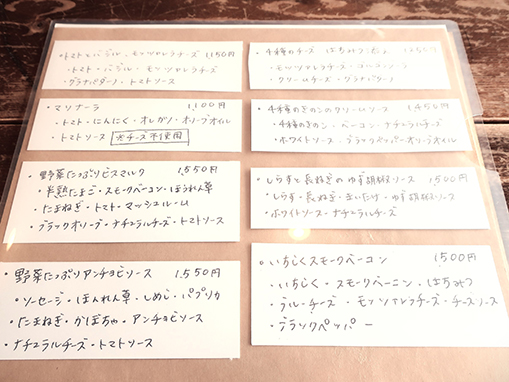 ・トマト、バジル、モッツァレラチーズ 1,150円
・トマト・バジル・モッツァレラチーズ
・グラナパダーノ・トマトソース
・マリナーラ 1,100円
・トマト・にんにく・オレガノ・オリーブオイル
・トマトソース ※チーズ不使用
・野菜たっぷりビスマルク 1,550円
・半熟たまご・スモークベーコン・ほうれん草
・たまねぎ・トマト・マッシュルーム
・ブラックオリーブ・ナチュラルチーズ・トマトソース
・野菜たっぷりアンチョビソース 1,550円
・ソーセージ・ほうれん草・しめじ・パプリカ
・たまねぎ・かぼちゃ・アンチョビソース
・ナチュラルチーズ・トマトソース
・4種のチーズ はちみつ
・モッツァレラチーズ・ゴルゴンゾーラ
・クリームチーズ・グラナパダーノ
・4種のきのこのクリームソース 1,450円
・4種のきのこ・ベーコン・ナチュラルチーズ
・ホワイトソース・ブラックペッパー・オリーブオイル
・しらすと長ねぎのゆず胡椒ソース 1,500円
・しらす・長ねぎ・まいたけ・ゆず胡椒ソース
・ホワイトソース・ナチュラルチーズ
・いちじくスモークベーコン 1,500円
・いちじく・スモークベーコン・はちみつ
・ブルーチーズ・モッツァレラチーズ・チーズソース
・ブラックペッパー